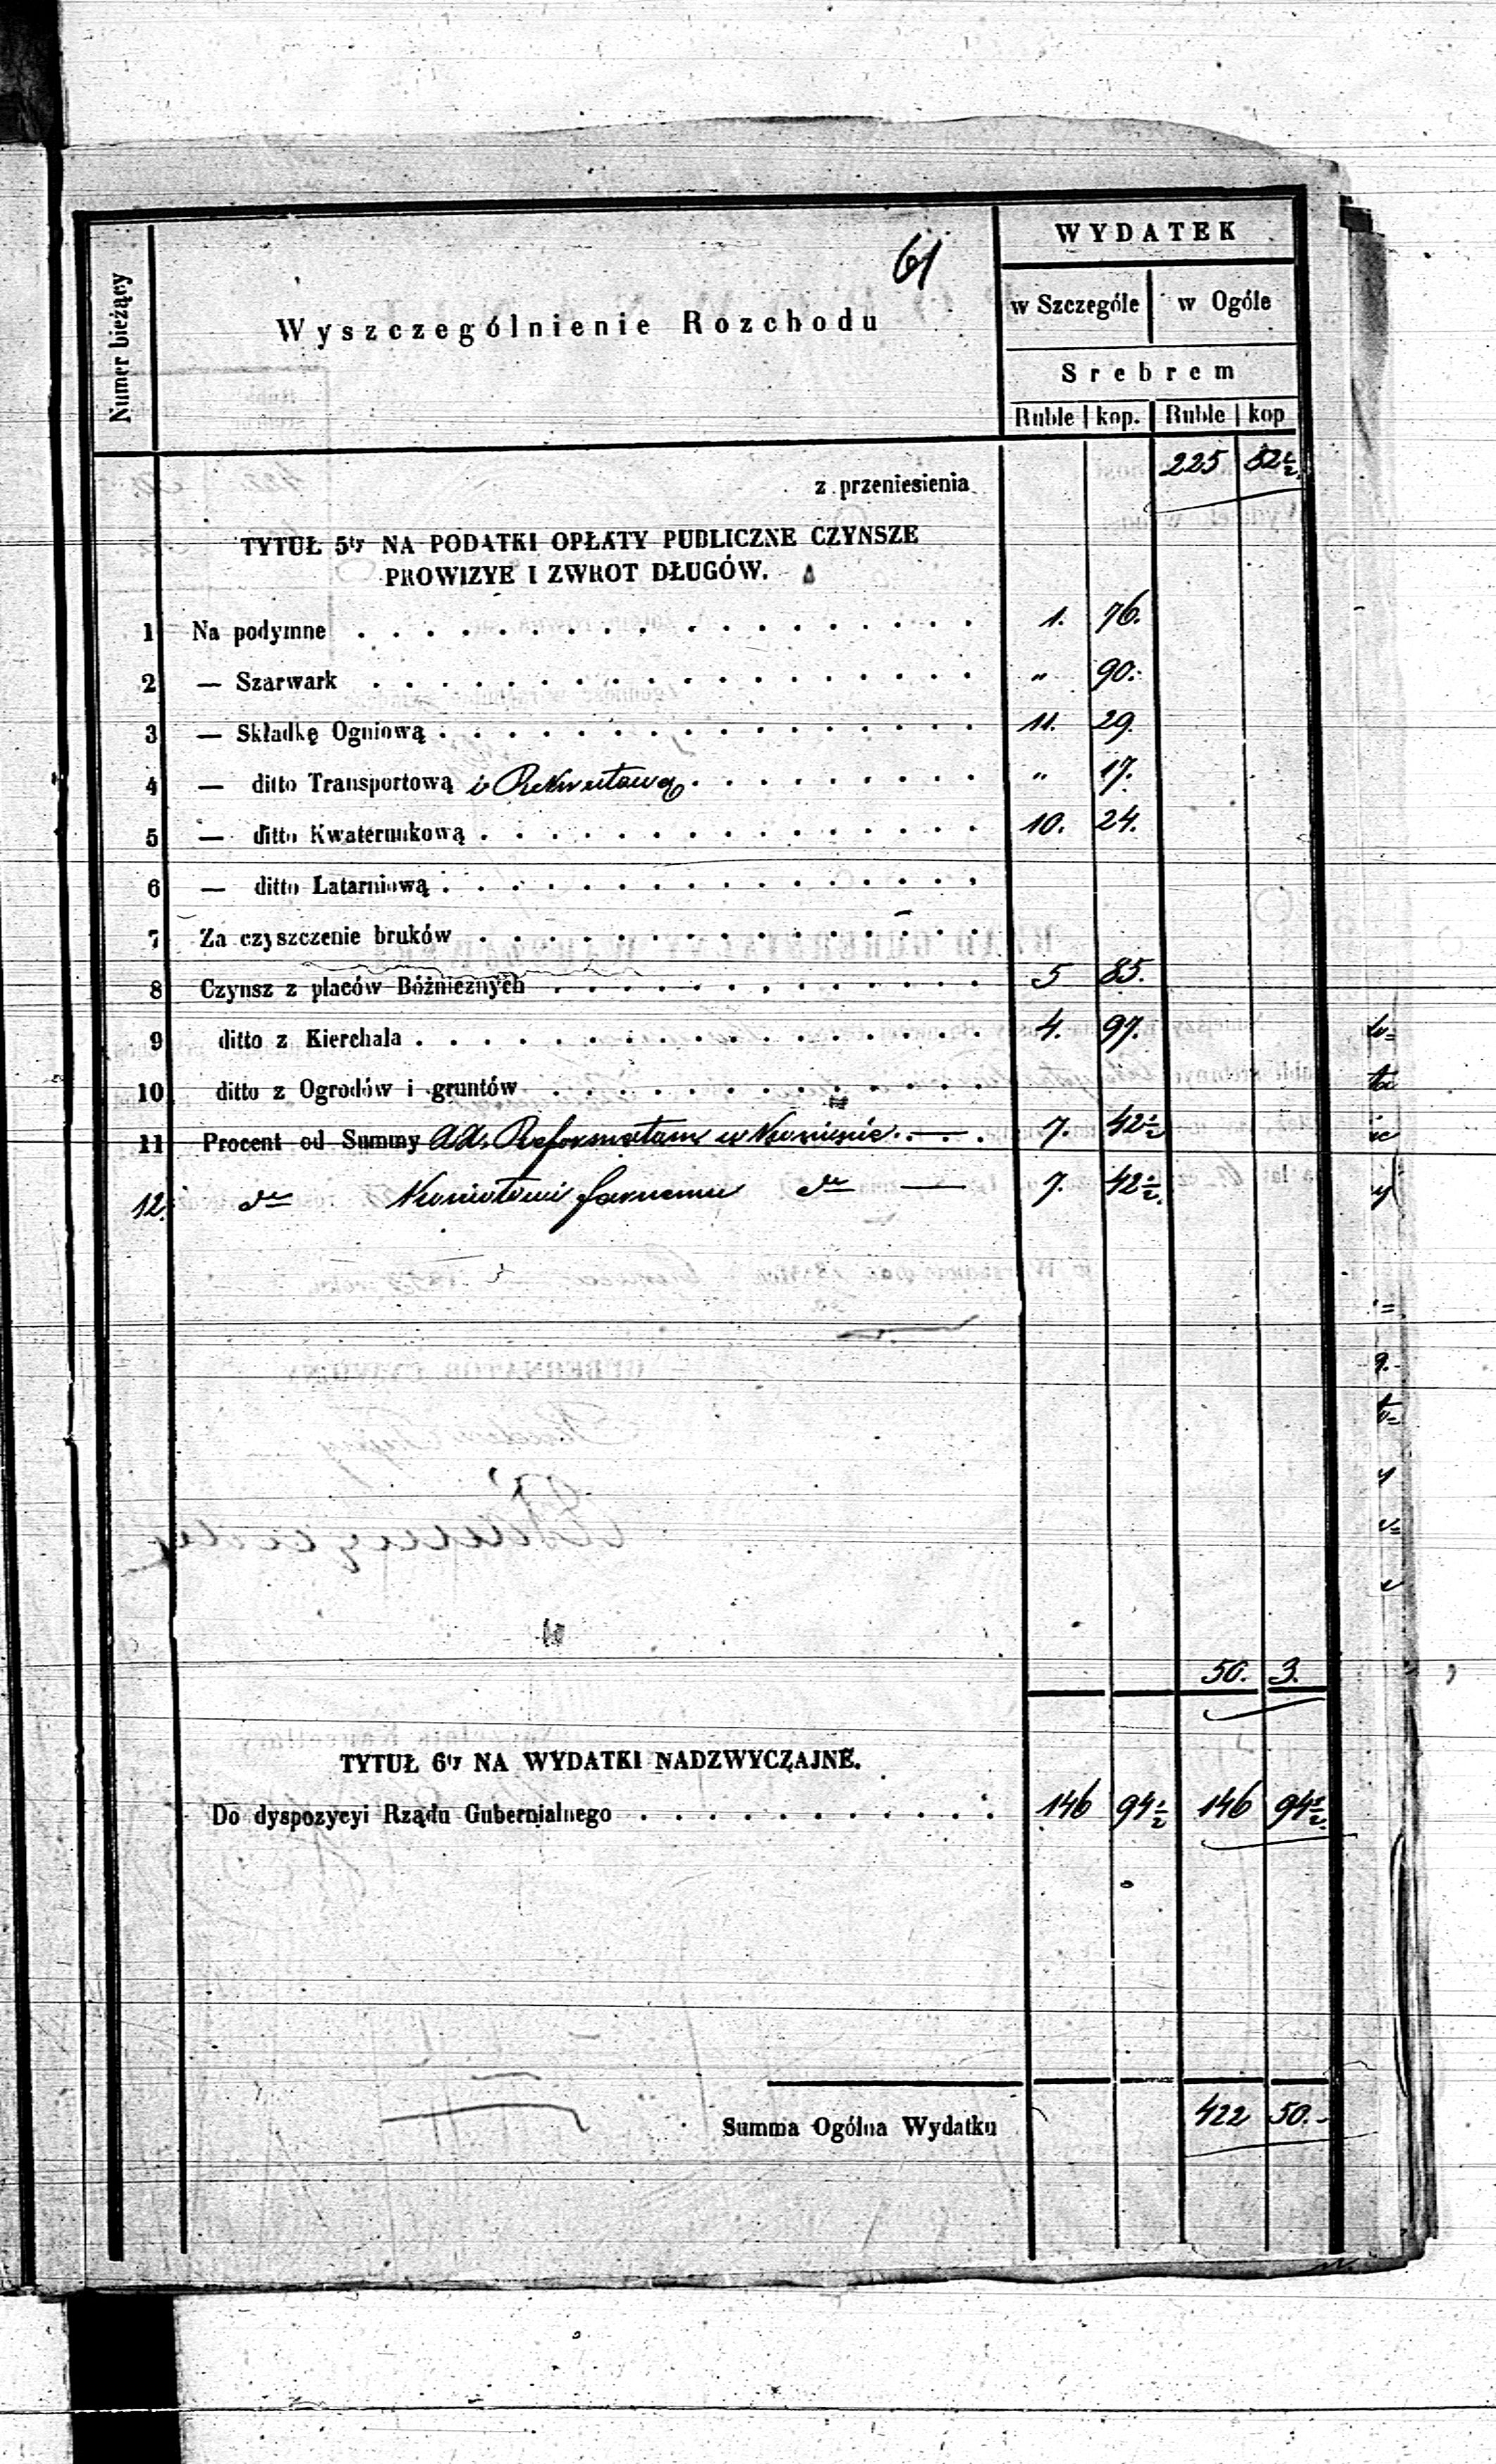 61
Numer bieżący
Wyszczególnienie Rozchodu
WYDATEK
w Szczególe w Ogóle
Srebrem
Ruble kop. Ruble kop
z przeniesienia 225 52½
TYTUŁ 5ty NA PODATKI OPŁATY PUBLICZNE CZYNSZE
PROWIZYE I ZWROT DŁUGÓW.
1 Na podymne 1. 76.
2 — Szarwark " 90.
3 — Składkę Ogniową 11. 29.
4 — ditto Transportową i Rekrutową " 17.
5 — ditto Kwaterunkową 10. 24.
6 — ditto Latarniową
7 Za czyszczenie bruków
8 Czynsz z placów Bóżnicznych 5 85.
9 ditto z Kierchala 4. 97.
10 ditto z Ogrodów i gruntów
11 Procent od Summy Reformatom w 7. 42½
12. dto Kościołowi farnemu dto — 7. 42½
50. 3.
TYTUŁ 6ty NA WYDATKI NADZWYCZAJNE.
Do dyspozycyi Rządu Gubernialnego 146 94½ 146 94½
Summa Ogólna Wydatku 422 50.